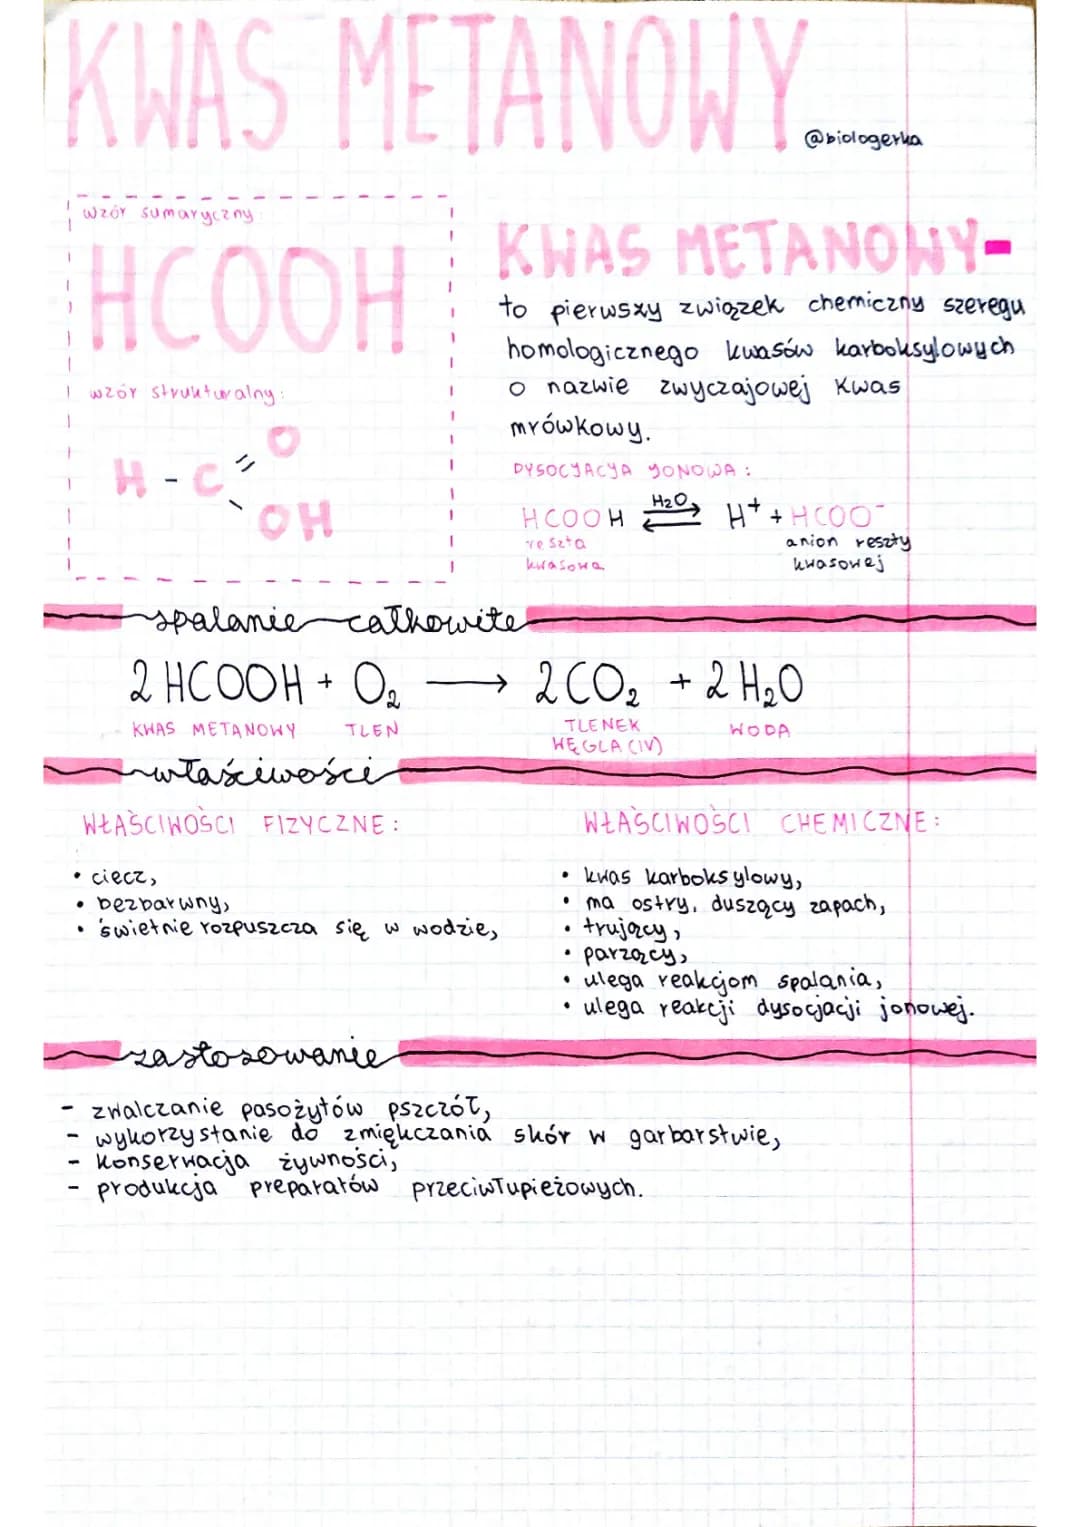 KWAS METANOWY
@biologerka
wzór sumaryczny
HCOOH
wzór strukturalny:
O
H - C =
\
OH
KWAS METANOWY-
to pierwszy związek chemiczny szeregu
homologicznego kwasów karboksylowych
o nazwie zwyczajowej kwas
mrówkowy.
DYSOCJACJA JONOWA:
HCOOH ⇌ H₂O H⁺ + HCOO⁻
reszta
kwasowa
anion reszty
kwasowej
spalanie całkowite
2 HCOOH + O₂ → 2CO₂ + 2H₂O
KWAS METANOWY TLEN TLENEK WODA
WĘGLA (IV)
właściwości
WŁAŚCIWOŚCI FIZYCZNE:
• ciecz,
• bezbarwny,
• świetnie rozpuszcza się w wodzie,
WŁAŚCIWOŚCI CHEMICZNE:
• kwas karboksylowy,
• ma ostry, duszący zapach,
• trujący,
• parzący,
• ulega reakcjom spalania,
• ulega reakcji dysocjacji jonowej.
zastosowanie
- zwalczanie pasożytów pszczół,
- wykorzystanie do zmiękczania skór w garbarstwie,
- konserwacja żywności,
- produkcja preparatów przeciwłupieżowych.